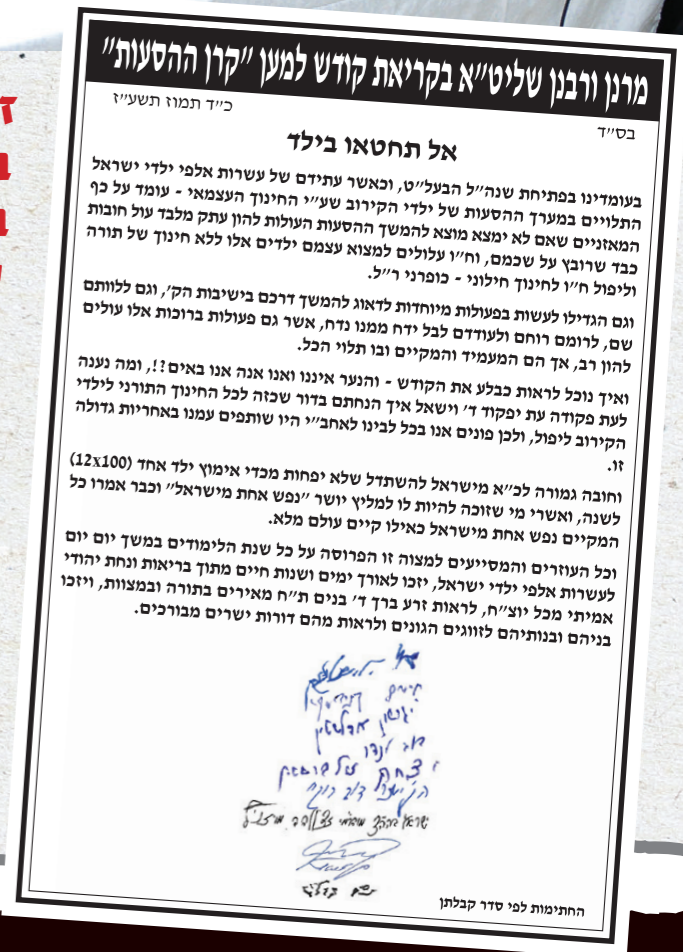 מרנן ורבנן שליט״א בקריאת קודש למען ״קרן ההסעות״
בס״ד
כ״ד תמוז תשע״ז
אל תחטאו בילד
בעומדינו בפתיחת שנה״ל הבעל״ט, וכאשר עתידם של עשרות אלפי ילדי ישראל
התלויים במערך ההסעות של ילדי הקירוב שע״י החינוך העצמאי - עומד על כף
המאזניים שאם לא ימצא מוצא להמשך ההסעות העולות להון עתק מלבד עול חובות
כבד שרובץ על שכמם, וח״ו עלולים למצוא עצמם ילדים אלו ללא חינוך של תורה
וליפול ח״ו לחינוך חילוני - כופרני ר״ל.
וגם הגדילו לעשות בפעולות מיוחדות לדאוג להמשך דרכם בישיבות הק׳, וגם ללוותם
שם, לרומם רוחם ולעודדם לבל ידח ממנו נדח, אשר גם פעולות ברוכות אלו עולים
להון רב, אך הם המעמיד והמקיים ובו תלוי הכל.
ואיך נוכל לראות כבלע את הקודש - והנער איננו ואנו אנה אנו באים?!, ומה נענה
לעת פקודה עת יפקוד ד׳ וישאל איך הנחתם בדור שכזה לכל החינוך התורני לילדי
הקירוב ליפול, ולכן פונים אנו בכל לבינו לאחב״י היו שותפים עמנו באחריות גדולה
זו.
וחובה גמורה לכ״א מישראל להשתדל שלא יפחות מכדי אימוץ ילד אחד (12x100)
לשנה, ואשרי מי שזוכה להיות לו למליץ יושר ״נפש אחת מישראל״ וכבר אמרו כל
המקיים נפש אחת מישראל כאילו קיים עולם מלא.
וכל העוזרים והמסייעים למצוה זו הפרוסה על כל שנת הלימודים במשך יום יום
לעשרות אלפי ילדי ישראל, יזכו לאורך ימים ושנות חיים מתוך בריאות ונחת יהודי
אמיתי מכל יוצ״ח, לראות זרע ברך ד׳ בנים ת״ח מאירים בתורה ובמצוות, ויזכו
בניהם ובנותיהם לזווגים הגונים ולראות מהם דורות ישרים מבורכים.
דוב לנדו
החתימות לפי סדר קבלתן